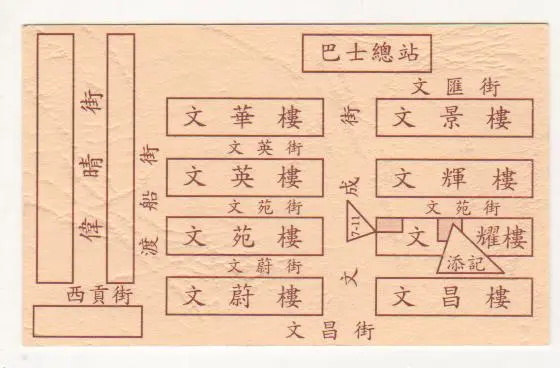 巴士總站
文匯街
偉晴街
渡船街
文成街
文華樓
文景樓
文英街
文英樓
文輝樓
文苑街
文苑街
文苑樓
7-11
文耀樓
添記
文蔚街
文蔚樓
文昌樓
西貢街
文昌街